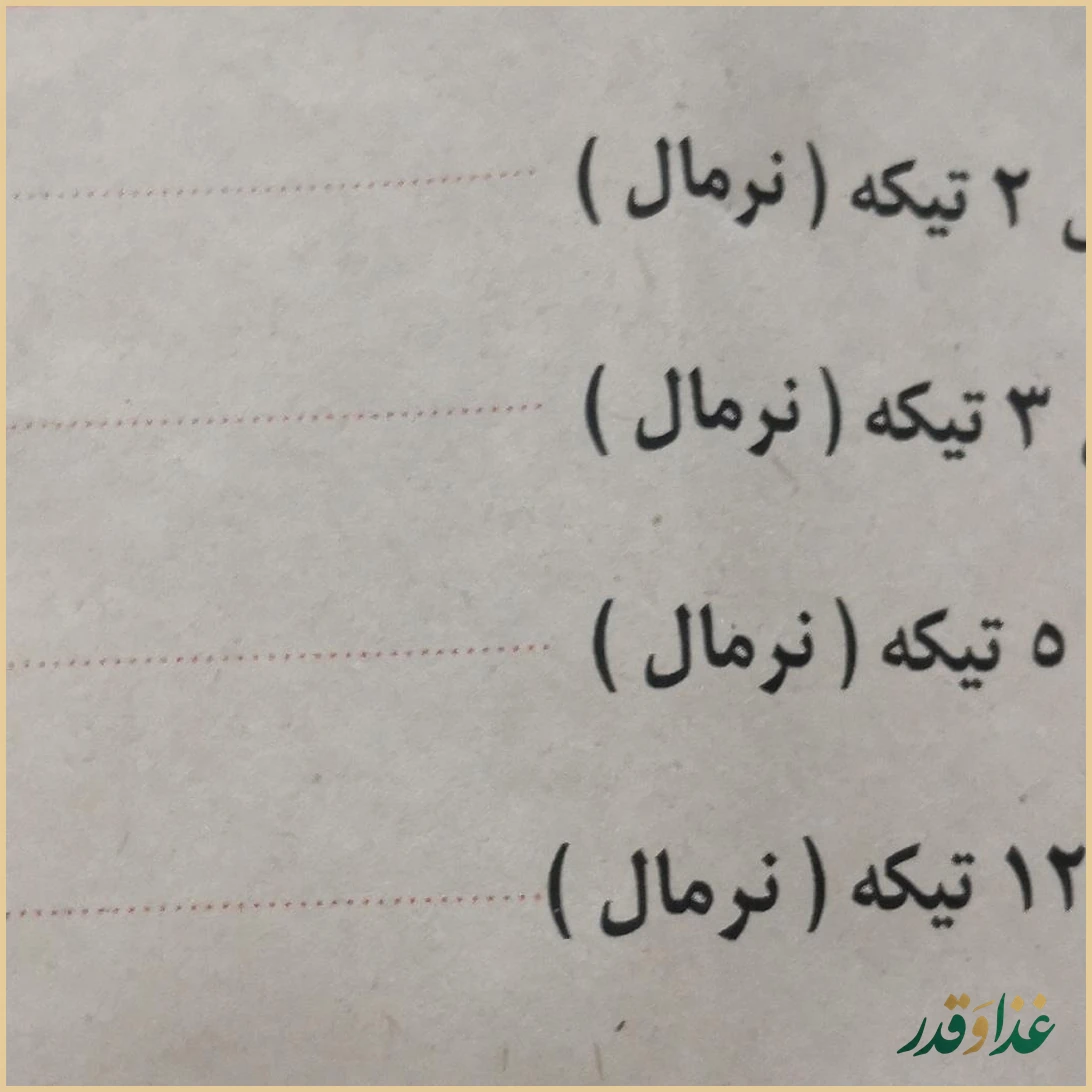 ۲ تیکه ( نرمال )
۳ تیکه ( نرمال )
۵ تیکه ( نرمال )
۱۲ تیکه ( نرمال )
غذا و قدر